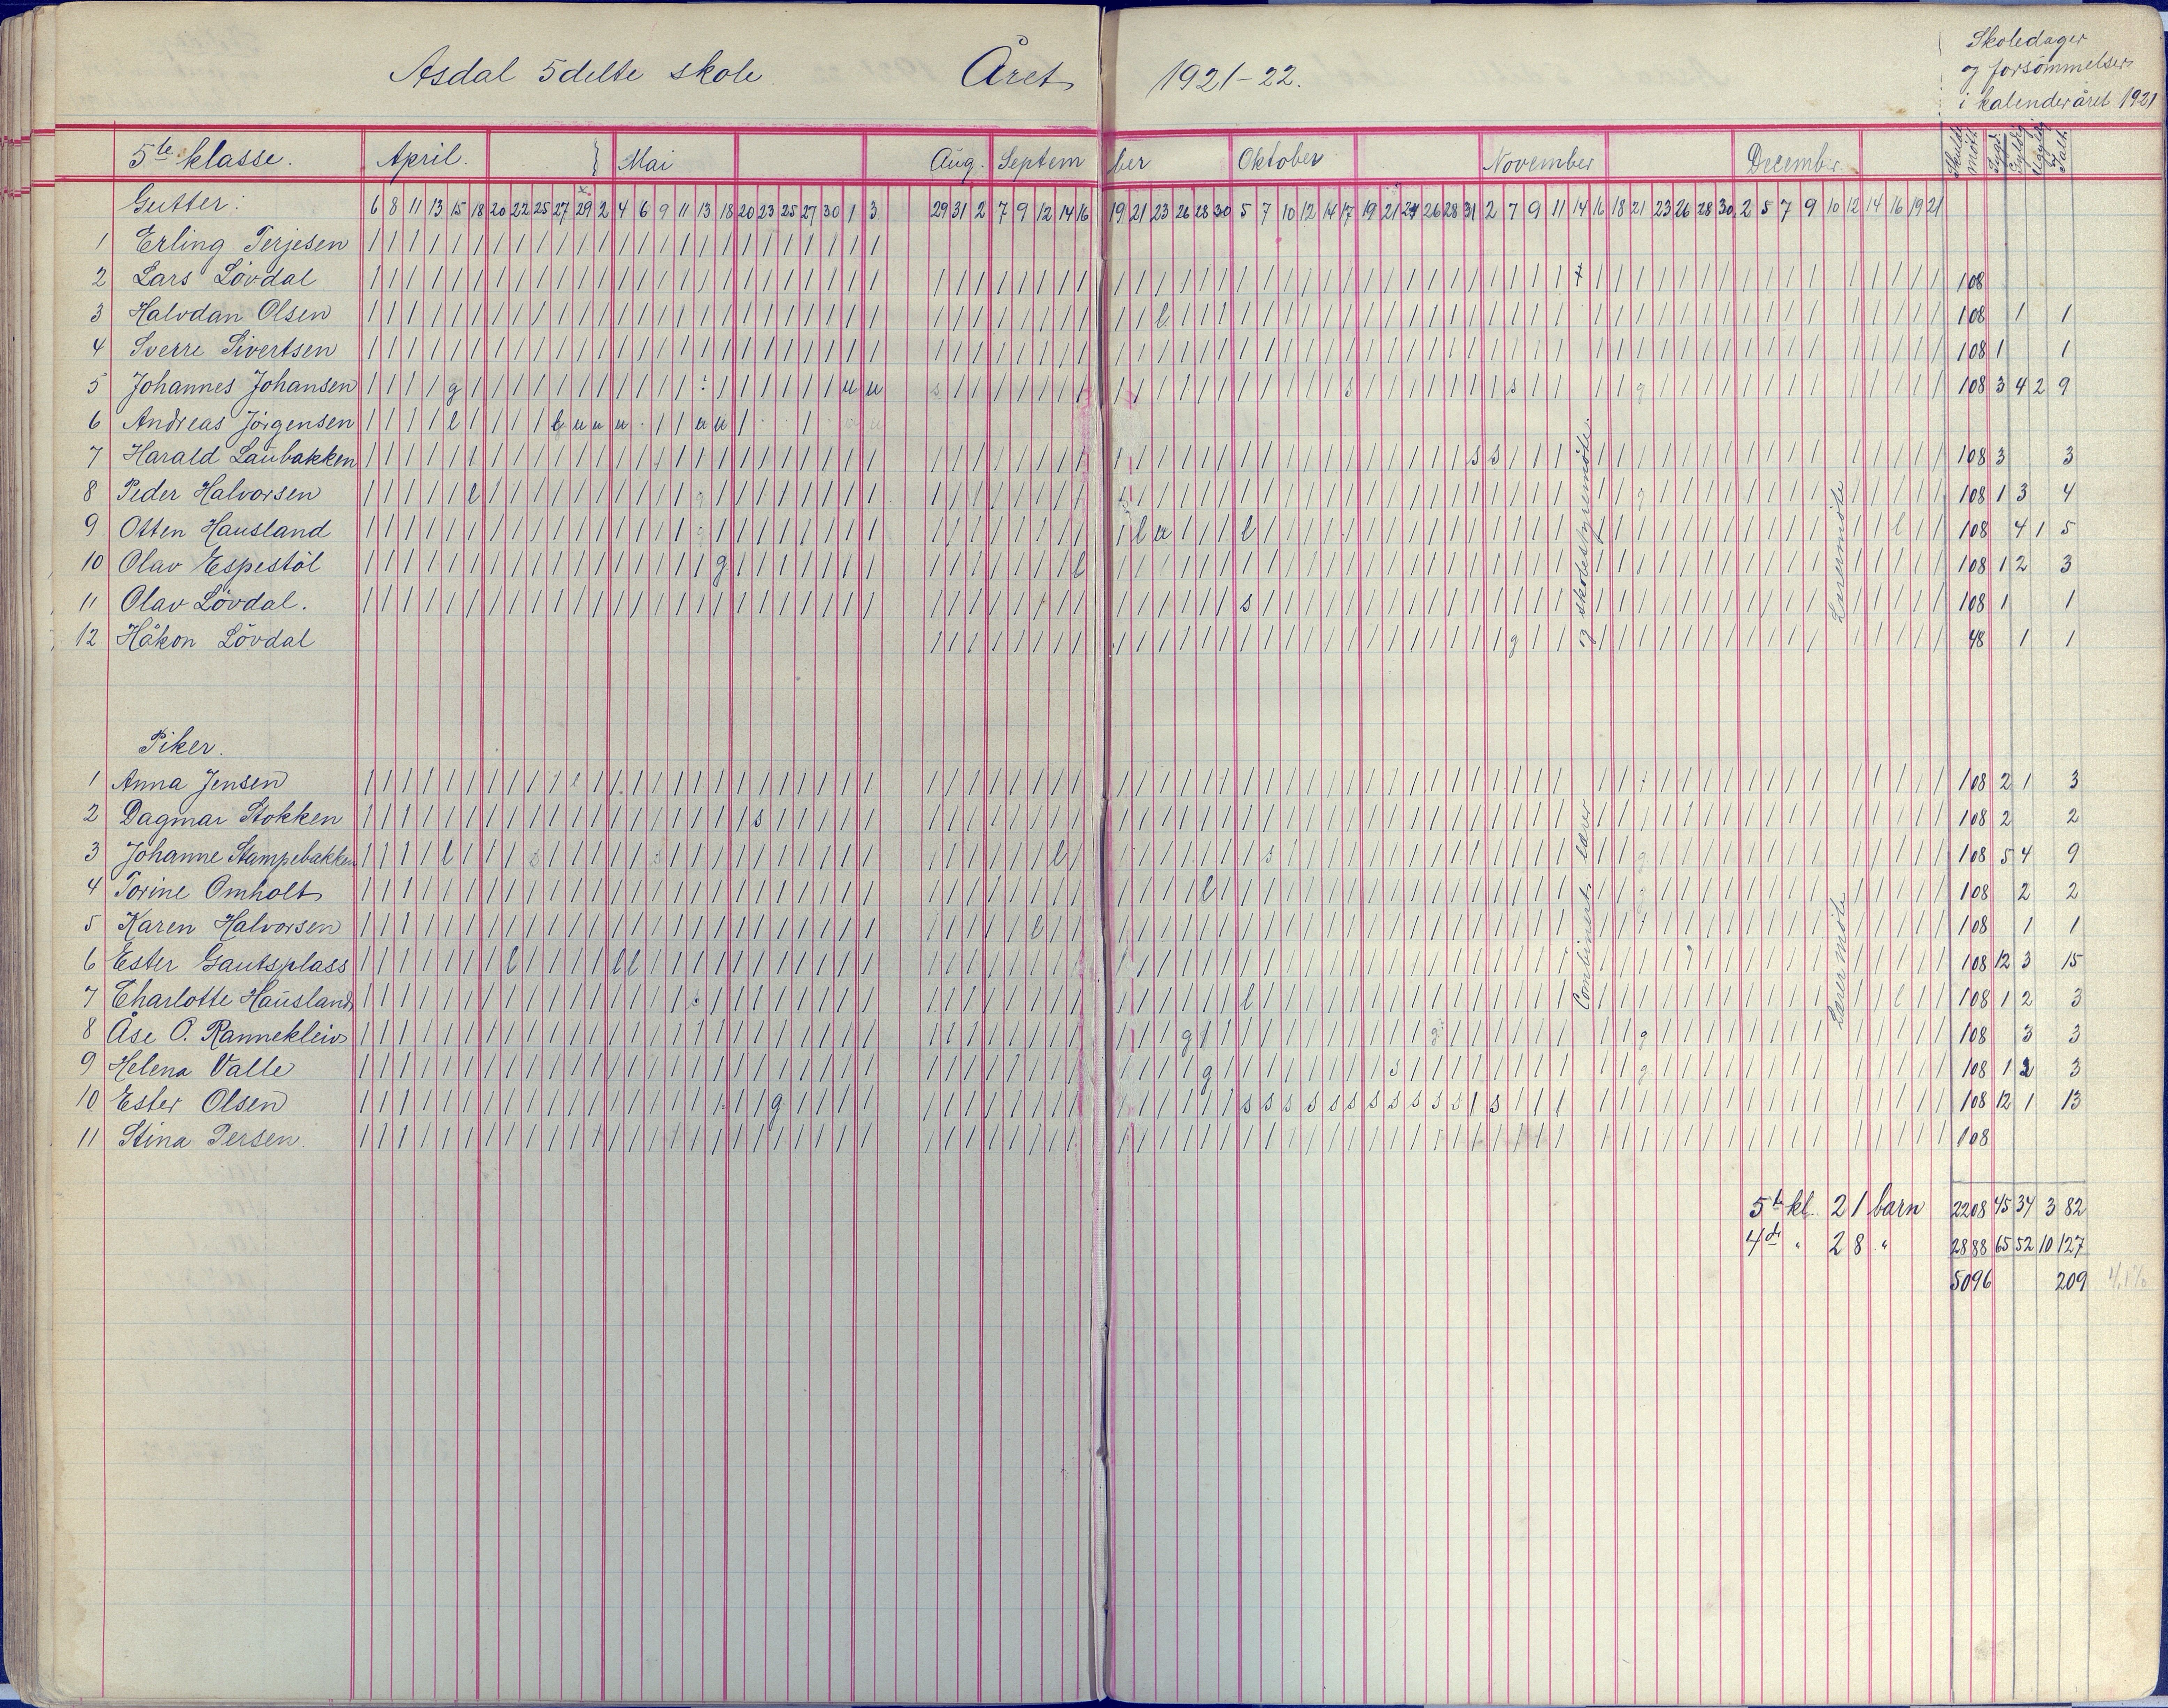 Asdal 5delte skole. Året 1921-22.
Skoledager
og forsömmelser
i kalenderåret 1921
5te klasse. April. Mai Aug. Septem ber Oktober November December Skuldt møt Sygd. Gyldig Ugyldig Ialt.
Gutter: 6 8 11 13 15 18 20 22 25 27 29 2 4 6 9 11 13 18 20 23 25 27 30 1 3 29 31 2 7 9 12 14 16 19 21 23 26 28 30 5 7 10 12 14 17 19 21 24 26 28 31 2 7 9 11 14 16 18 21 23 26 28 30 2 5 7 9 10 12 14 16 19 21
1 Erling Terjesen
2 Lars Lövdal 108
3 Halvdan Olsen l 108 1 1
4 Sverre Sivertsen 108 1 1
5 Johannes Johansen g u u s s s g 108 3 4 2 9
6 Andreas Jörgensen l l u u u u u
7 Harald Laubakken s s 108 3 3
8 Peder Halvorsen l g 108 1 3 4
9 Otten Hausland l u l l 108 4 1 5
10 Olav Espestöl g l 108 1 2 3
11 Olav Lövdal. s 108 1 1
12 Håkon Lövdal g 48 1 1
og skolestyremöte.
Lærermöte
Piker.
1 Anna Jensen 108 2 1 3
2 Dagmar Stokken s 108 2 2
3 Johanne Stampebakken l s s l s g 108 5 4 9
4 Torine Omholt l g 108 2 2
5 Karen Halvorsen l 108 1 1
6 Ester Gautsplass l l l 108 12 3 15
7 Charlotte Hausland l l 108 1 2 3
8 Åse O. Rannekleiv g g g 108 3 3
9 Helena Valle g s g 108 1 2 3
10 Ester Olsen g s s s s s s s s s s s s 108 12 1 13
11 Stina Persen. 108
Combinert lærer
Lærermöte
5te kl. 21 barn 2208 45 34 3 82
4de " 28 " 2888 65 52 10 127
5096 209 4,1%